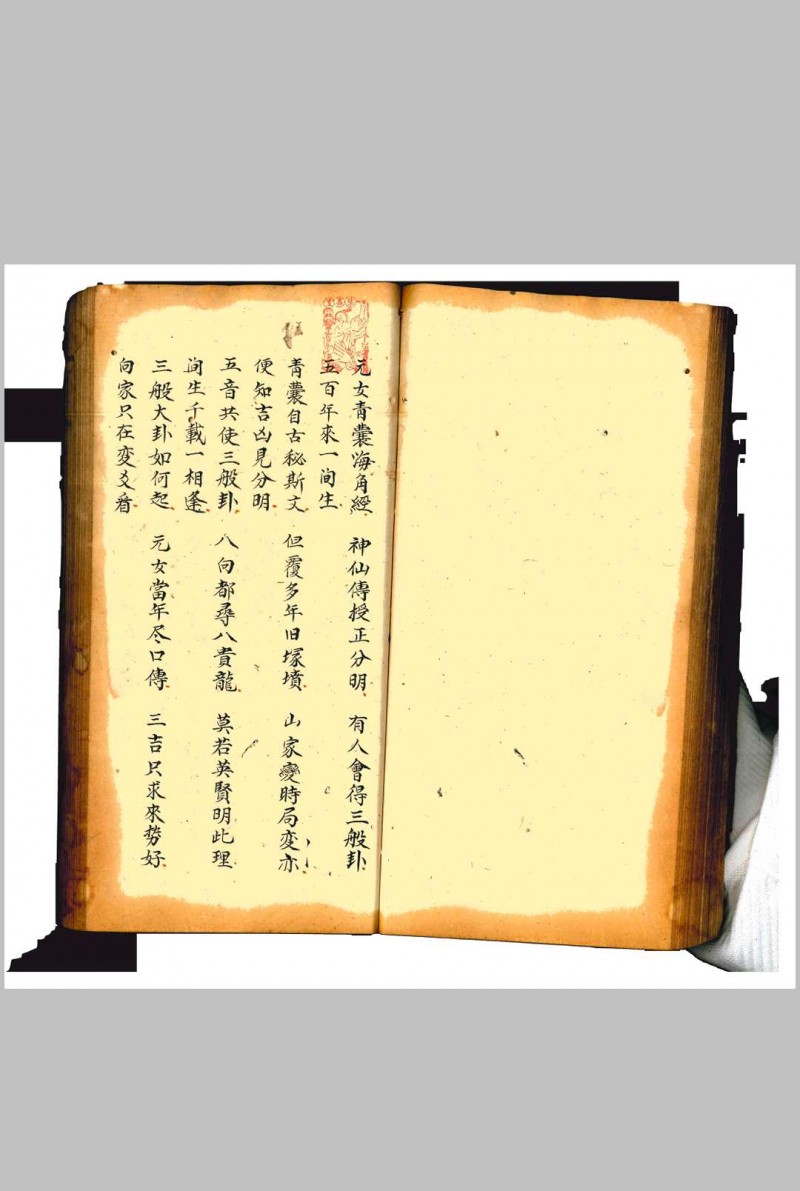 元女青囊海角經　神仙傳授正分明　有人會得三般卦
五百年來一间生
青囊自古秘斯文　但覆多年旧塚墳　山家變時局変亦
便知吉凶見分明
五音共使三般卦　八向都尋八貴龍　莫若英賢明此理
间生千載一相逢
三般大卦如何起　元女當年尽口傳　三吉只求來勢好
向家只在変爻看